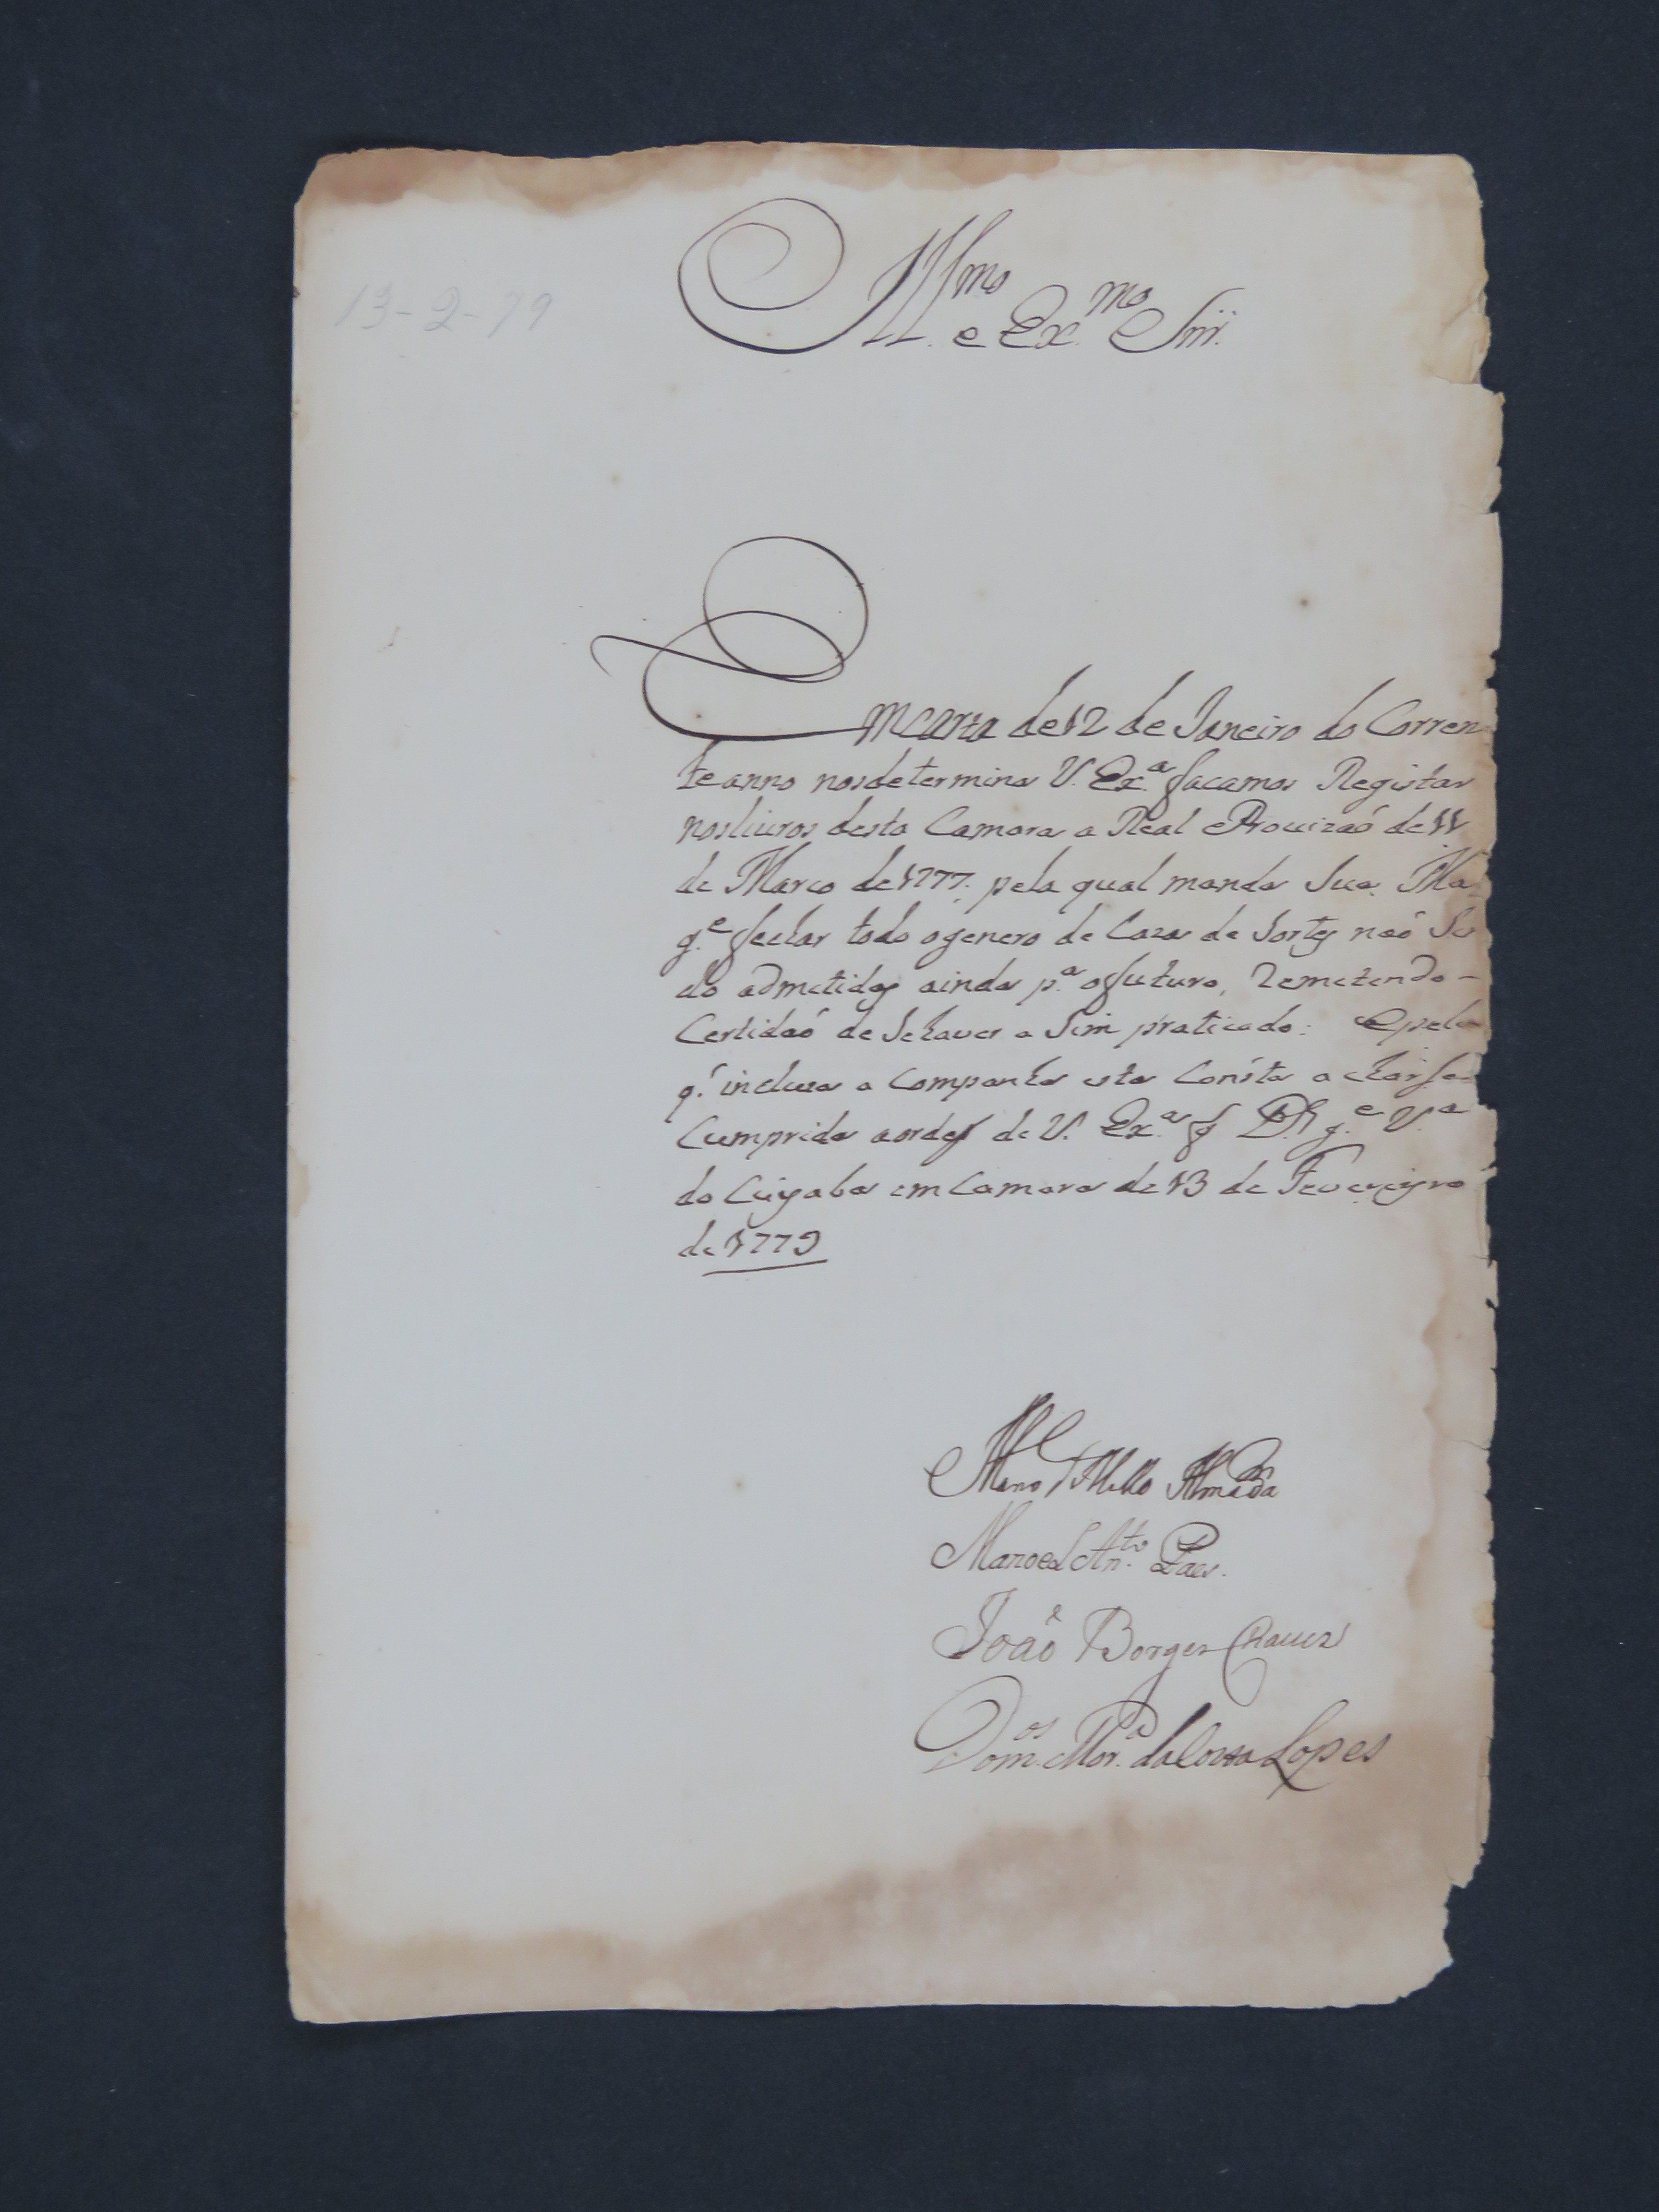 13-2-79
Ill.mo e Ex.mo Snr.
Em Carta de 12 de Janeiro do Corren
te anno nos determina V. Ex.a façamos Registar
nos liuros desta Camara a Real Prouizaó de 11
de Março de 1777. pela qual manda Sua Ma
g.e fechar todo o genero de Caza de Sortes naó Se
do admetidas ainda p.a o futuro, Remetendo-
Certidaó de Sehauer a Sim praticado: e pela
q' incluza a Companha esta Consta a charse
Cumprida a ordem de V. Ex.a q D.s g.e V.a
do Cuyaba em Camara de 13 de Feuereyro
de 1779
Mello Almada
Manoel An.to Paes.
João Borges
Dom.os Mor.a da Costa Lopes